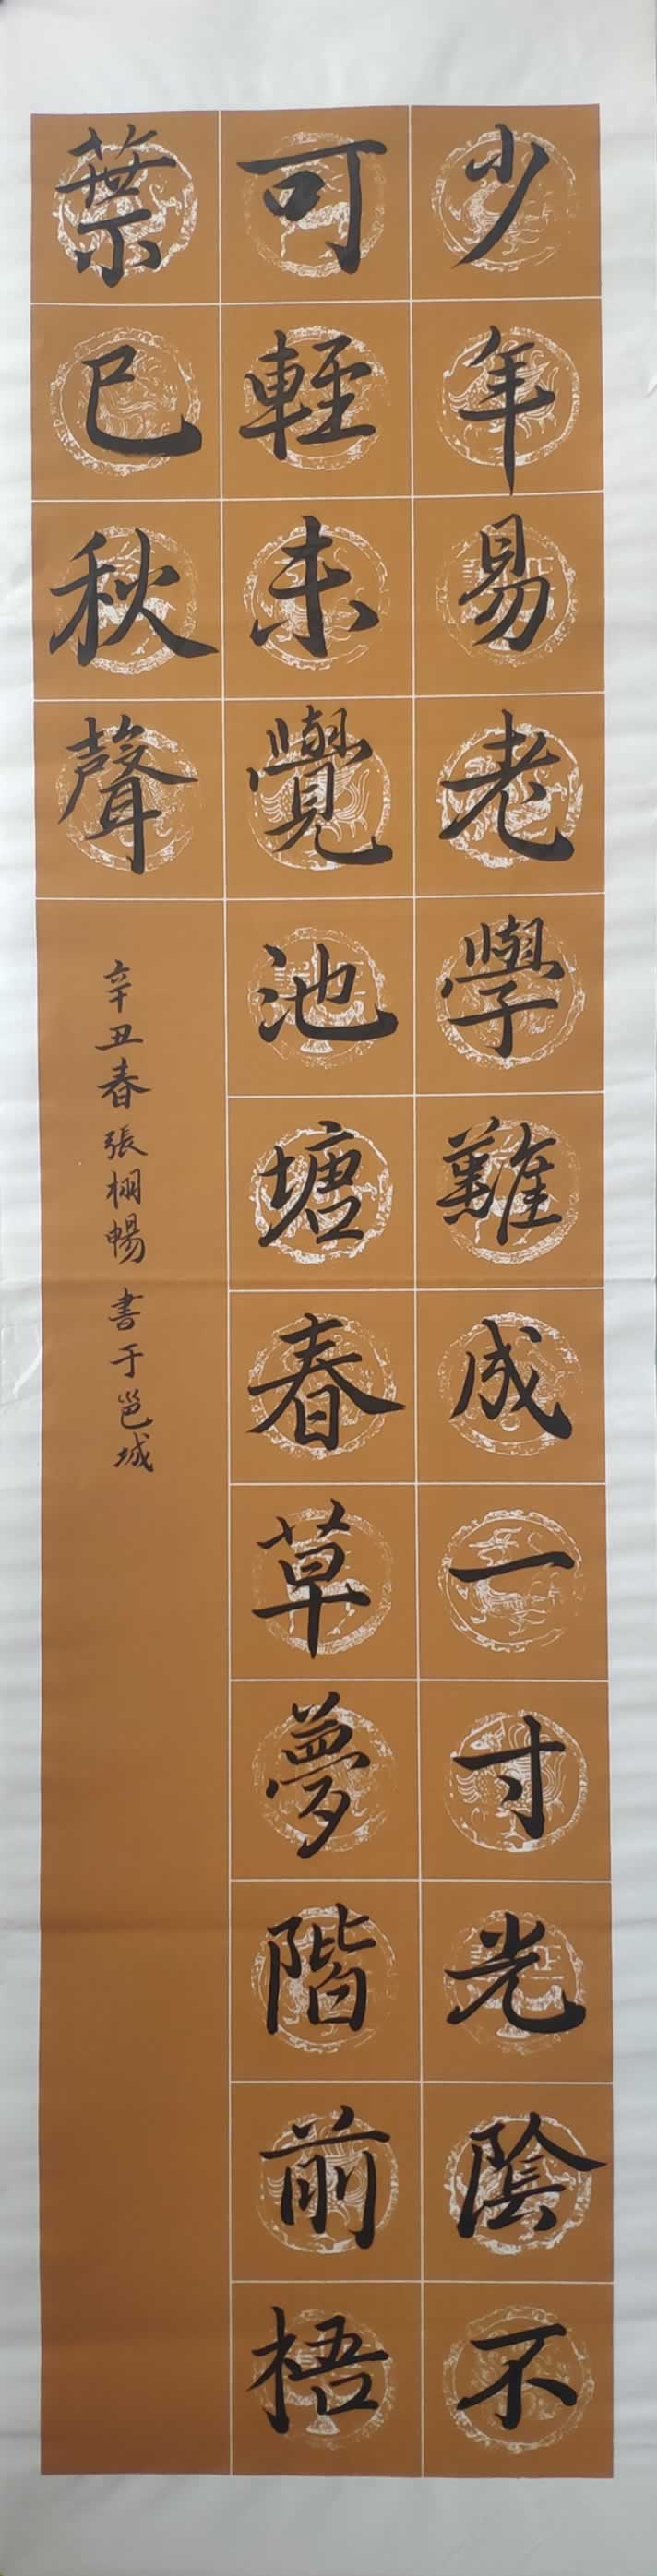 少年易老學難成一寸光陰不
可輕未覺池塘春草夢階前梧
葉已秋聲
辛丑春張栩暢書于邕城